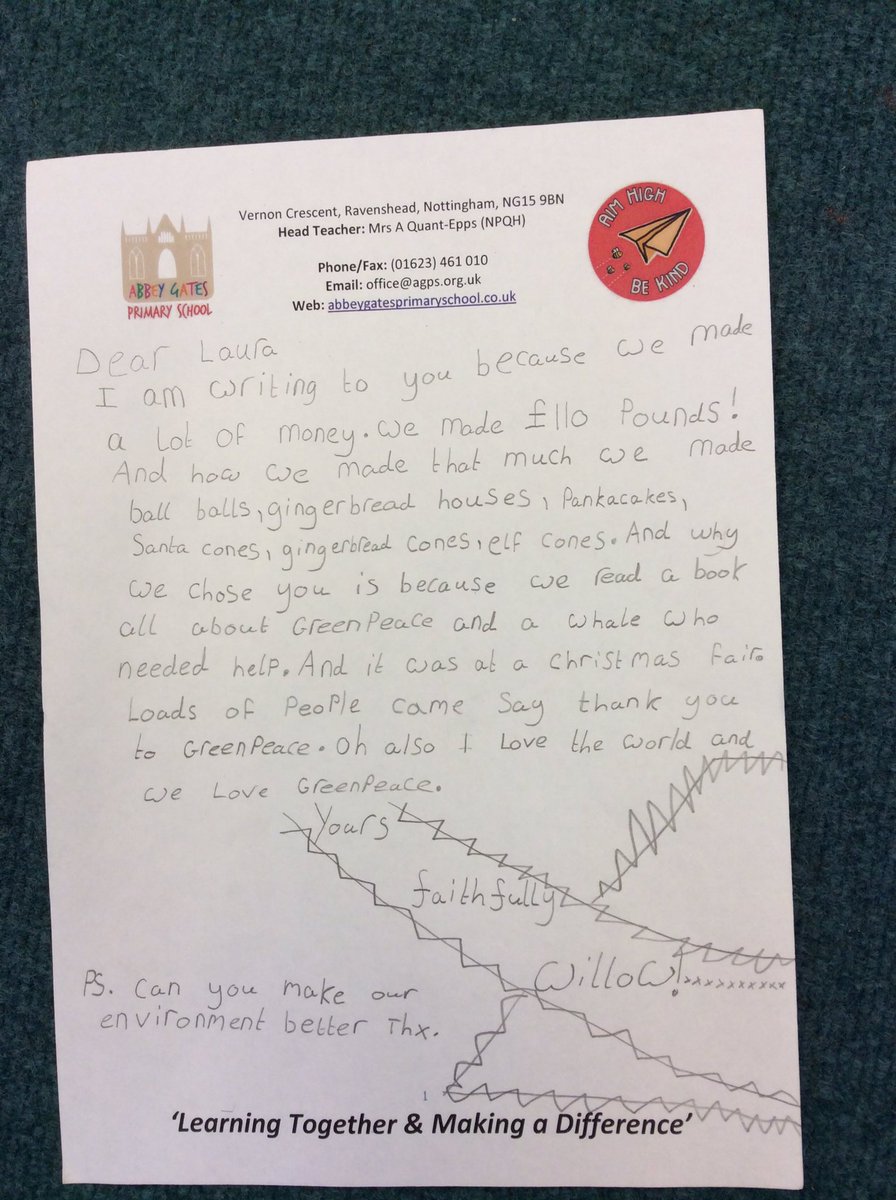 Vernon Crescent, Ravenshead, Nottingham, NG15 9BN
Head Teacher: Mrs A Quant-Epps (NPQH)
Phone/Fax: (01623) 461 010
Email: office@agps.org.uk
Web: abbeygatesprimaryschool.co.uk
ABBEY GATES
PRIMARY SCHOOL
AIM HIGH
BE KIND
Dear Laura
I am writing to you because we made
a lot of money. we made £110 Pounds!
And how we made that much we made
ball balls, gingerbread houses, Pankacakes,
Santa cones, gingerbread cones, elf cones. And why
we chose you is because we read a book
all about GreenPeace and a whale who
needed help. And it was at a christmas fair.
Loads of People came Say thank you
to GreenPeace. Oh also I Love the world and
we Love GreenPeace.
Yours
faithfully
Willow! xxxxxxxxxx
PS. Can you make our
environment better Thx.
1
‘Learning Together & Making a Difference’